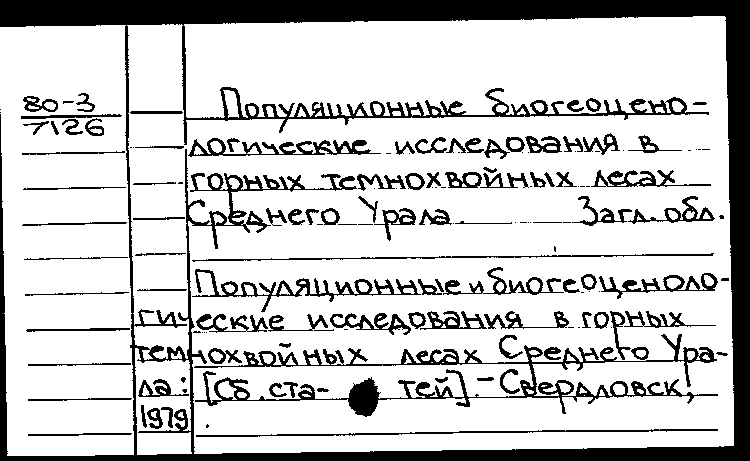 80-3
7126
Популяционные биогеоцено-
логические исследования в
горных темнохвойных лесах
Среднего Урала. Загл. обл.
Популяционные и биогеоценоло-
гические исследования в горных
темнохвойных лесах Среднего Ура-
ла: [Сб. ста- тей]. - Свердловск,
1979.